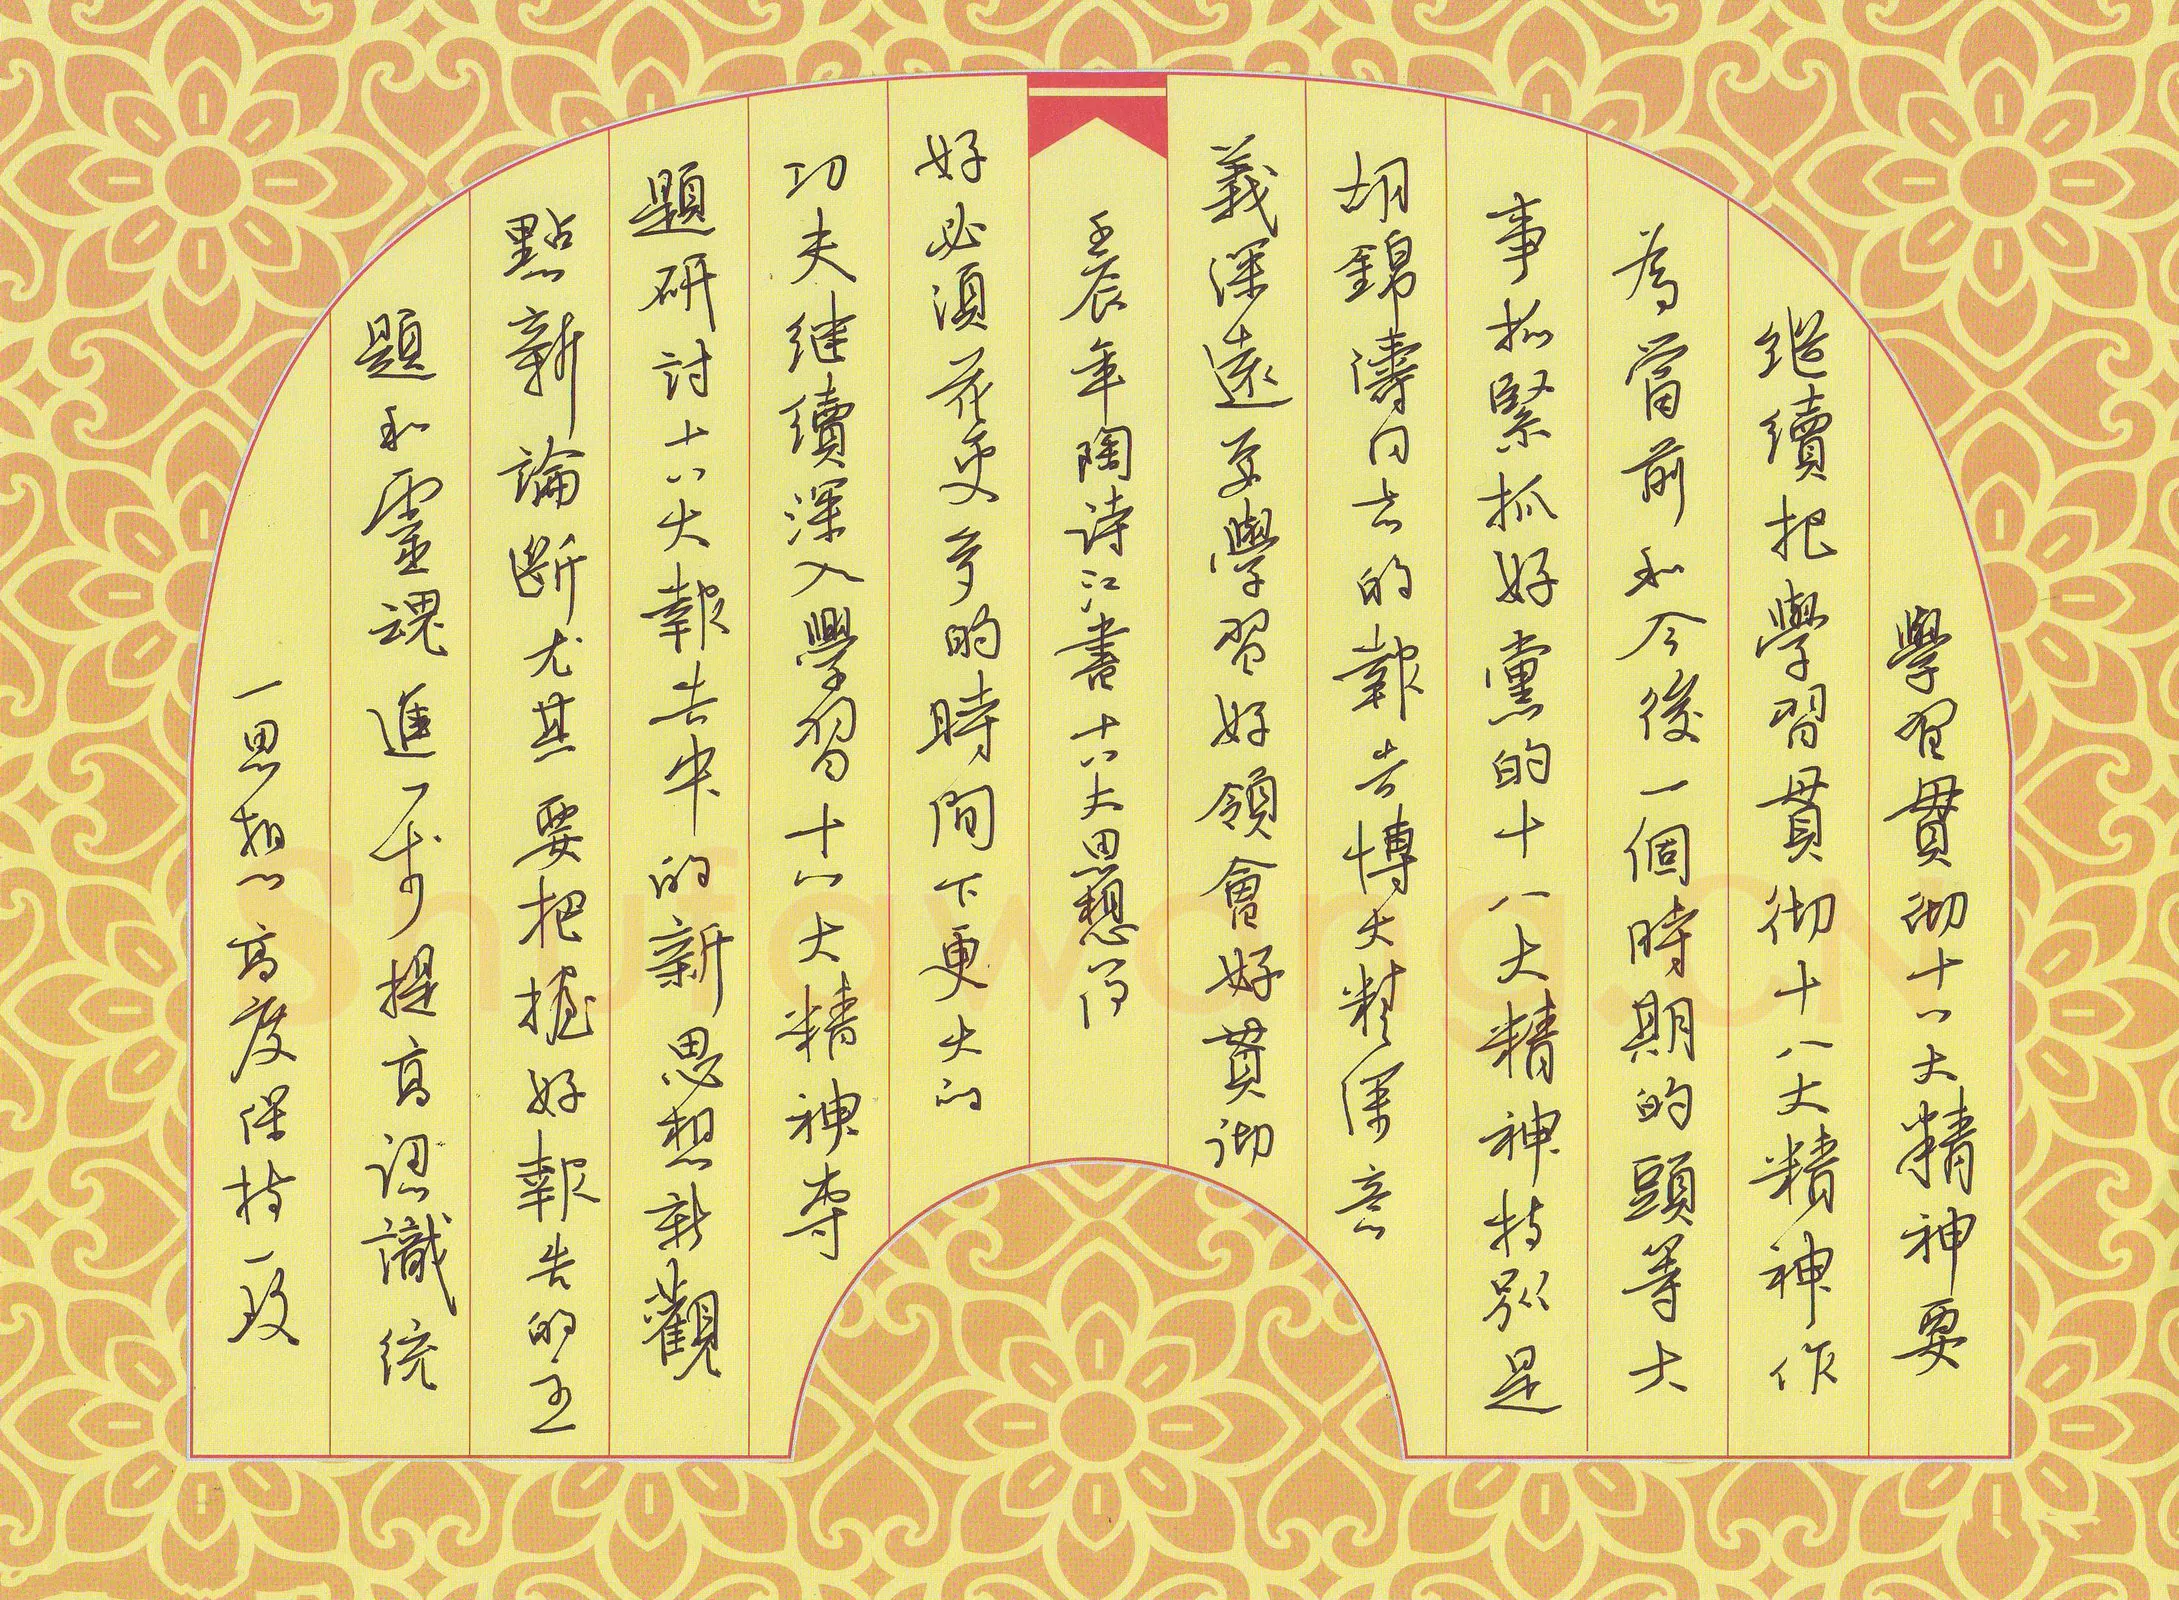 學習貫彻十八大精神要
继續把學習貫彻十八大精神作
為當前和今後一個時期的頭等大
事抓緊抓好黨的十八大精神特別是
胡錦濤同志的報告博大精深意
義深遠要學習好領會好貫彻
壬辰年陶诗江書十八大思想得
好必須花更多的時間下更大的
功夫继續深入學習十八大精神專
題研討十八大報告中的新思想新觀
點新論斷尤其要把握好報告的主
題和靈魂進一步提高認識统
一思想高度保持一致
Shufawang.CN